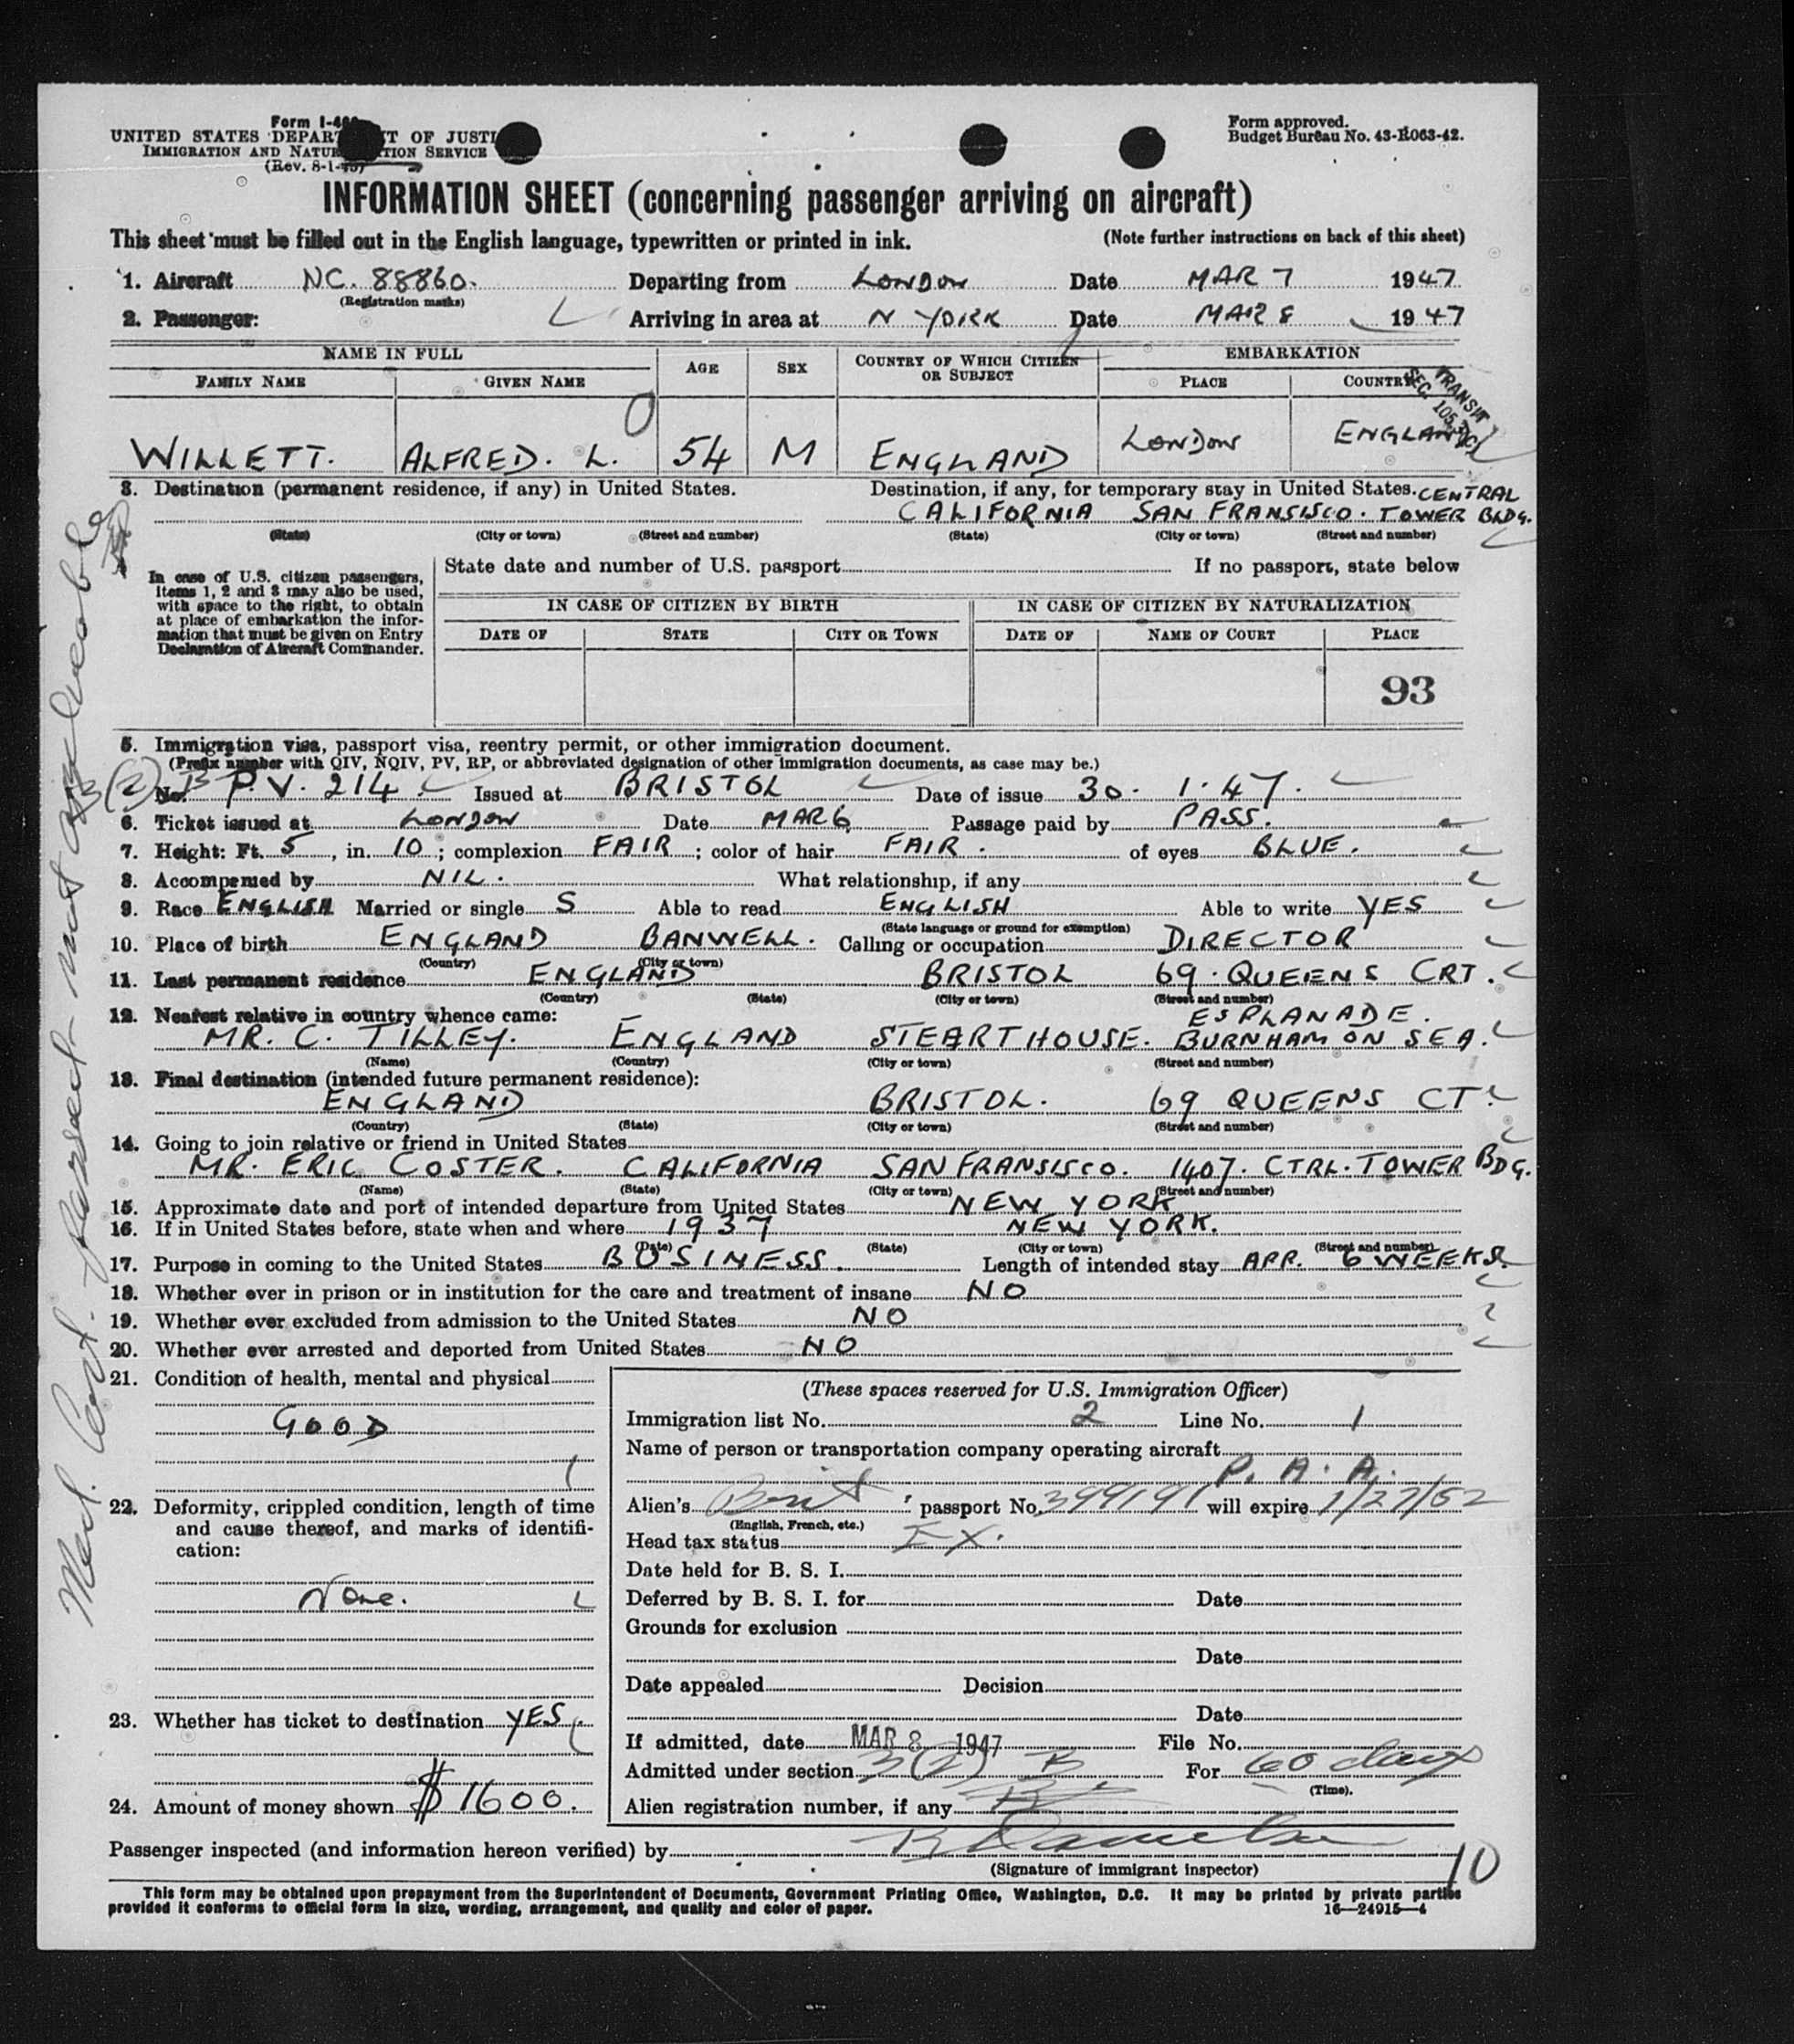 Form I-466
UNITED STATES DEPARTMENT OF JUSTICE
IMMIGRATION AND NATURALIZATION SERVICE
(Rev. 8-1-45)
Form approved.
Budget Bureau No. 43-R063-42.
INFORMATION SHEET (concerning passenger arriving on aircraft)
This sheet must be filled out in the English language, typewritten or printed in ink. (Note further instructions on back of this sheet)
1. Aircraft NC. 88860. Departing from LONDON Date MAR 7 1947
(Registration marks)
2. Passenger: Arriving in area at N YORK Date MAR 8 1947
NAME IN FULL AGE SEX COUNTRY OF WHICH CITIZEN OR SUBJECT EMBARKATION
FAMILY NAME GIVEN NAME PLACE COUNTRY
TRANSIT
SEC. 105.3(c)
WILLETT. ALFRED. L. 54 M ENGLAND LONDON ENGLAND
3. Destination (permanent residence, if any) in United States. Destination, if any, for temporary stay in United States. CENTRAL
CALIFORNIA SAN FRANSISCO. TOWER BLDG.
(State) (City or town) (Street and number) (State) (City or town) (Street and number)
In case of U.S. citizen passengers, items 1, 2 and 3 may also be used, with space to the right, to obtain at place of embarkation the information that must be given on Entry Declaration of Aircraft Commander.
State date and number of U.S. passport If no passport, state below
IN CASE OF CITIZEN BY BIRTH IN CASE OF CITIZEN BY NATURALIZATION
DATE OF STATE CITY OR TOWN DATE OF NAME OF COURT PLACE
93
5. Immigration visa, passport visa, reentry permit, or other immigration document.
(Prefix number with QIV, NQIV, PV, RP, or abbreviated designation of other immigration documents, as case may be.)
3(2) B No. P.V. 214. Issued at BRISTOL Date of issue 30. 1. 47.
6. Ticket issued at LONDON Date MAR 6 Passage paid by PASS.
7. Height: Ft. 5, in. 10; complexion FAIR; color of hair FAIR. of eyes BLUE.
8. Accompanied by NIL. What relationship, if any
9. Race ENGLISH Married or single S Able to read ENGLISH Able to write YES
(State language or ground for exemption)
10. Place of birth ENGLAND BANWELL. Calling or occupation DIRECTOR
(Country) (City or town)
11. Last permanent residence ENGLAND BRISTOL 69. QUEENS CRT.
(Country) (State) (City or town) (Street and number)
12. Nearest relative in country whence came: ESPLANADE.
MR. C. TILLEY. ENGLAND STEART HOUSE. BURNHAM ON SEA.
(Name) (Country) (City or town) (Street and number)
13. Final destination (intended future permanent residence):
ENGLAND BRISTOL. 69 QUEENS CT.
(Country) (State) (City or town) (Street and number)
14. Going to join relative or friend in United States
MR. ERIC COSTER. CALIFORNIA SAN FRANSISCO. 1407. CTRL. TOWER BDG.
(Name) (State) (City or town) (Street and number)
15. Approximate date and port of intended departure from United States NEW YORK
16. If in United States before, state when and where 1937 NEW YORK.
(Date) (State) (City or town) (Street and number)
17. Purpose in coming to the United States BUSINESS. Length of intended stay APR. 6 WEEKS.
18. Whether ever in prison or in institution for the care and treatment of insane NO
19. Whether ever excluded from admission to the United States NO
20. Whether ever arrested and deported from United States NO
21. Condition of health, mental and physical
GOOD
22. Deformity, crippled condition, length of time and cause thereof, and marks of identification:
None.
23. Whether has ticket to destination YES.
24. Amount of money shown $1600.
(These spaces reserved for U.S. Immigration Officer)
Immigration list No. 2 Line No. 1
Name of person or transportation company operating aircraft
P. A. A.
Alien's Brit passport No. 399191 will expire 1/27/52
(English, French, etc.)
Head tax status EX.
Date held for B. S. I.
Deferred by B. S. I. for Date
Grounds for exclusion
Date
Date appealed Decision
Date
If admitted, date MAR 8 1947 File No.
Admitted under section 3(2) B For 60 days
(Time).
Alien registration number, if any
Passenger inspected (and information hereon verified) by
(Signature of immigrant inspector)
10
This form may be obtained upon prepayment from the Superintendent of Documents, Government Printing Office, Washington, D.C. It may be printed by private parties
provided it conforms to official form in size, wording, arrangement, and quality and color of paper. 16—24915-4
Med. Cert. passed - not applicable